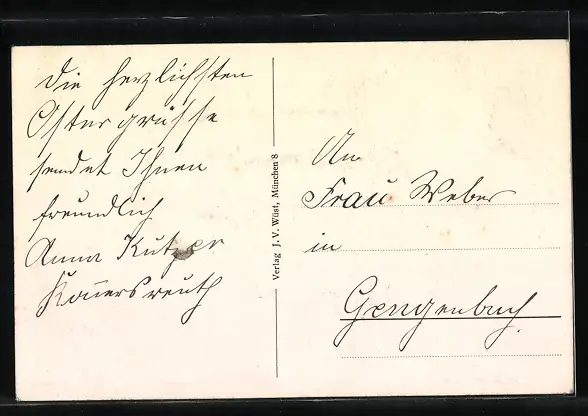 Die herzlichsten
Ostergrüsse
sendet Ihnen
freundlich
Anna Kutzer
Konnersreuth
Verlag J. V. Wüst, München 8
An
Frau Weber
in
Gengenbach